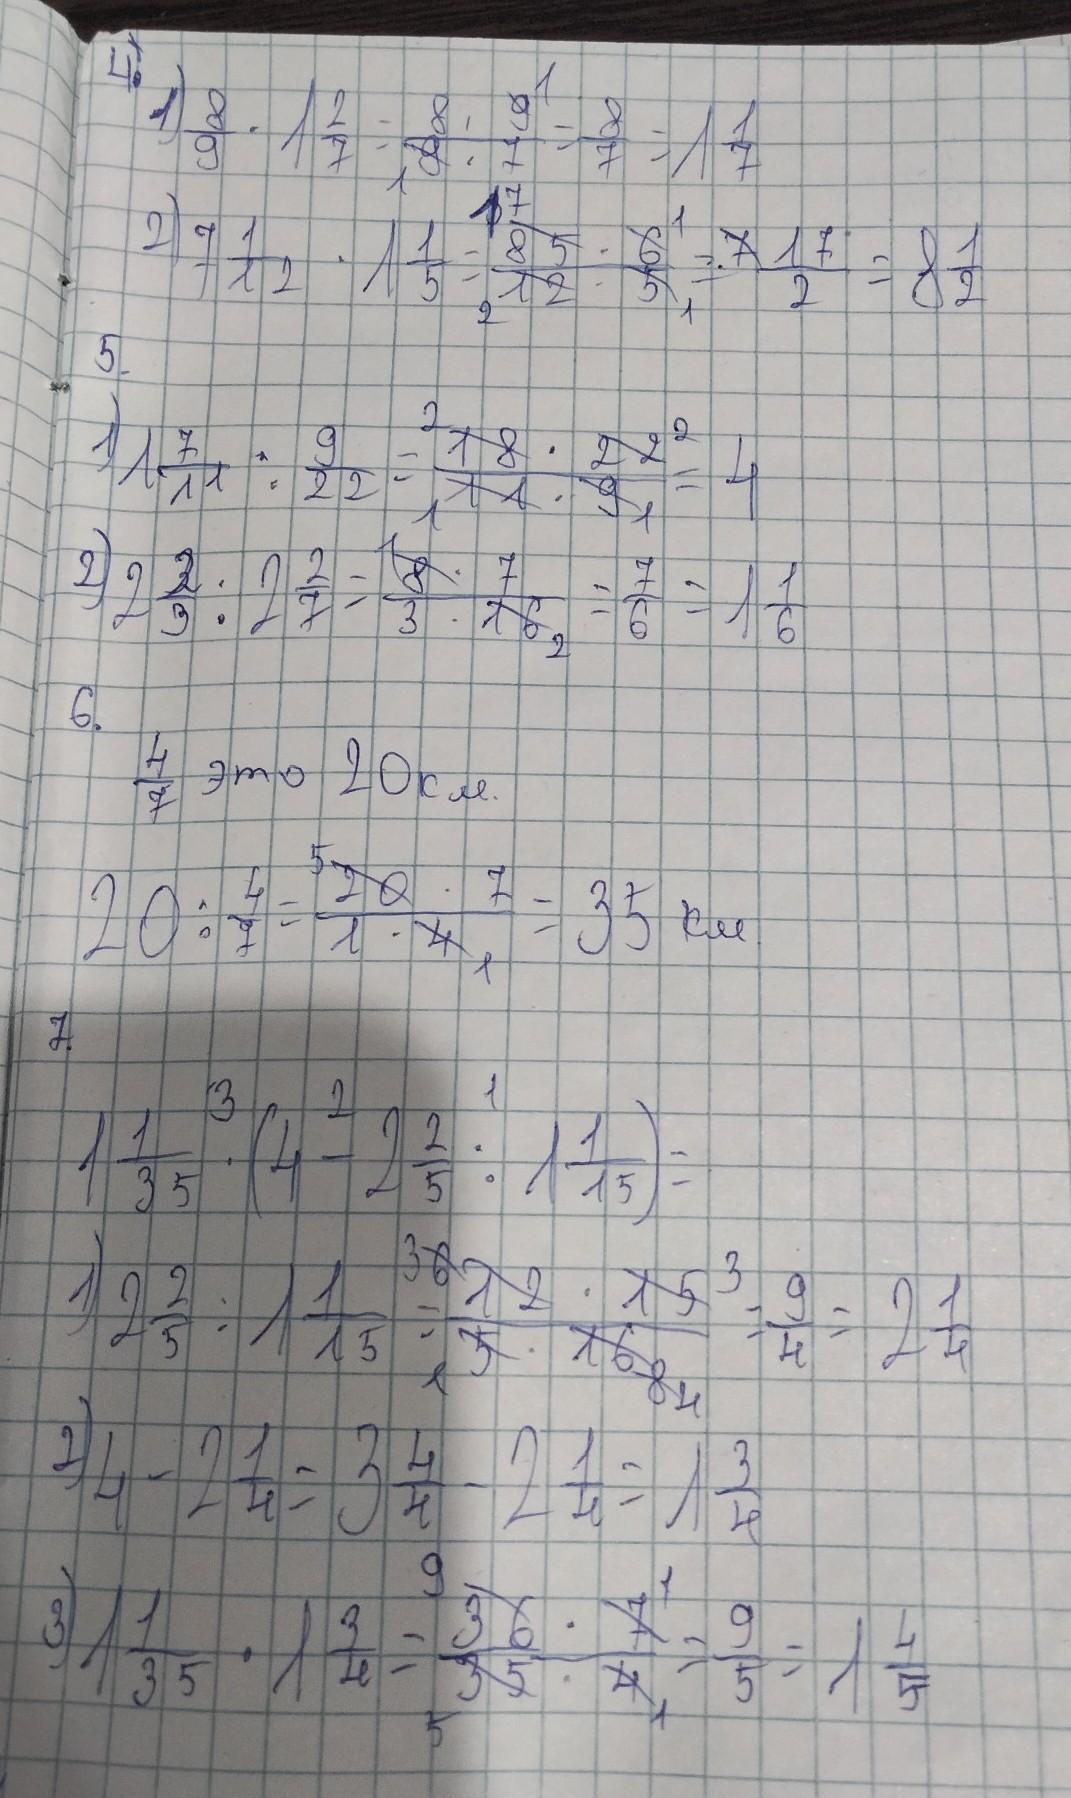 4.
1) 8/9 · 1 2/7 = (8 · 9)/(9 · 7) = 8/7 = 1 1/7
2) 7 1/12 · 1 1/5 = (85 · 6)/(12 · 5) = 17/2 = 8 1/2
5.
1) 1 7/11 : 9/22 = (18 · 22)/(11 · 9) = 4
2) 2 2/3 : 2 2/7 = (8 · 7)/(3 · 16) = 7/6 = 1 1/6
6.
4/7 это 20 км.
20 : 4/7 = (20 · 7)/(1 · 4) = 35 км
7.
3 2 1
1 1/35 · (4 - 2 2/5 : 1 1/15) =
1) 2 2/5 : 1 1/15 = (12 · 15)/(5 · 16) = 9/4 = 2 1/4
2) 4 - 2 1/4 = 3 4/4 - 2 1/4 = 1 3/4
3) 1 1/35 · 1 3/4 = (36 · 7)/(35 · 4) = 9/5 = 1 4/5